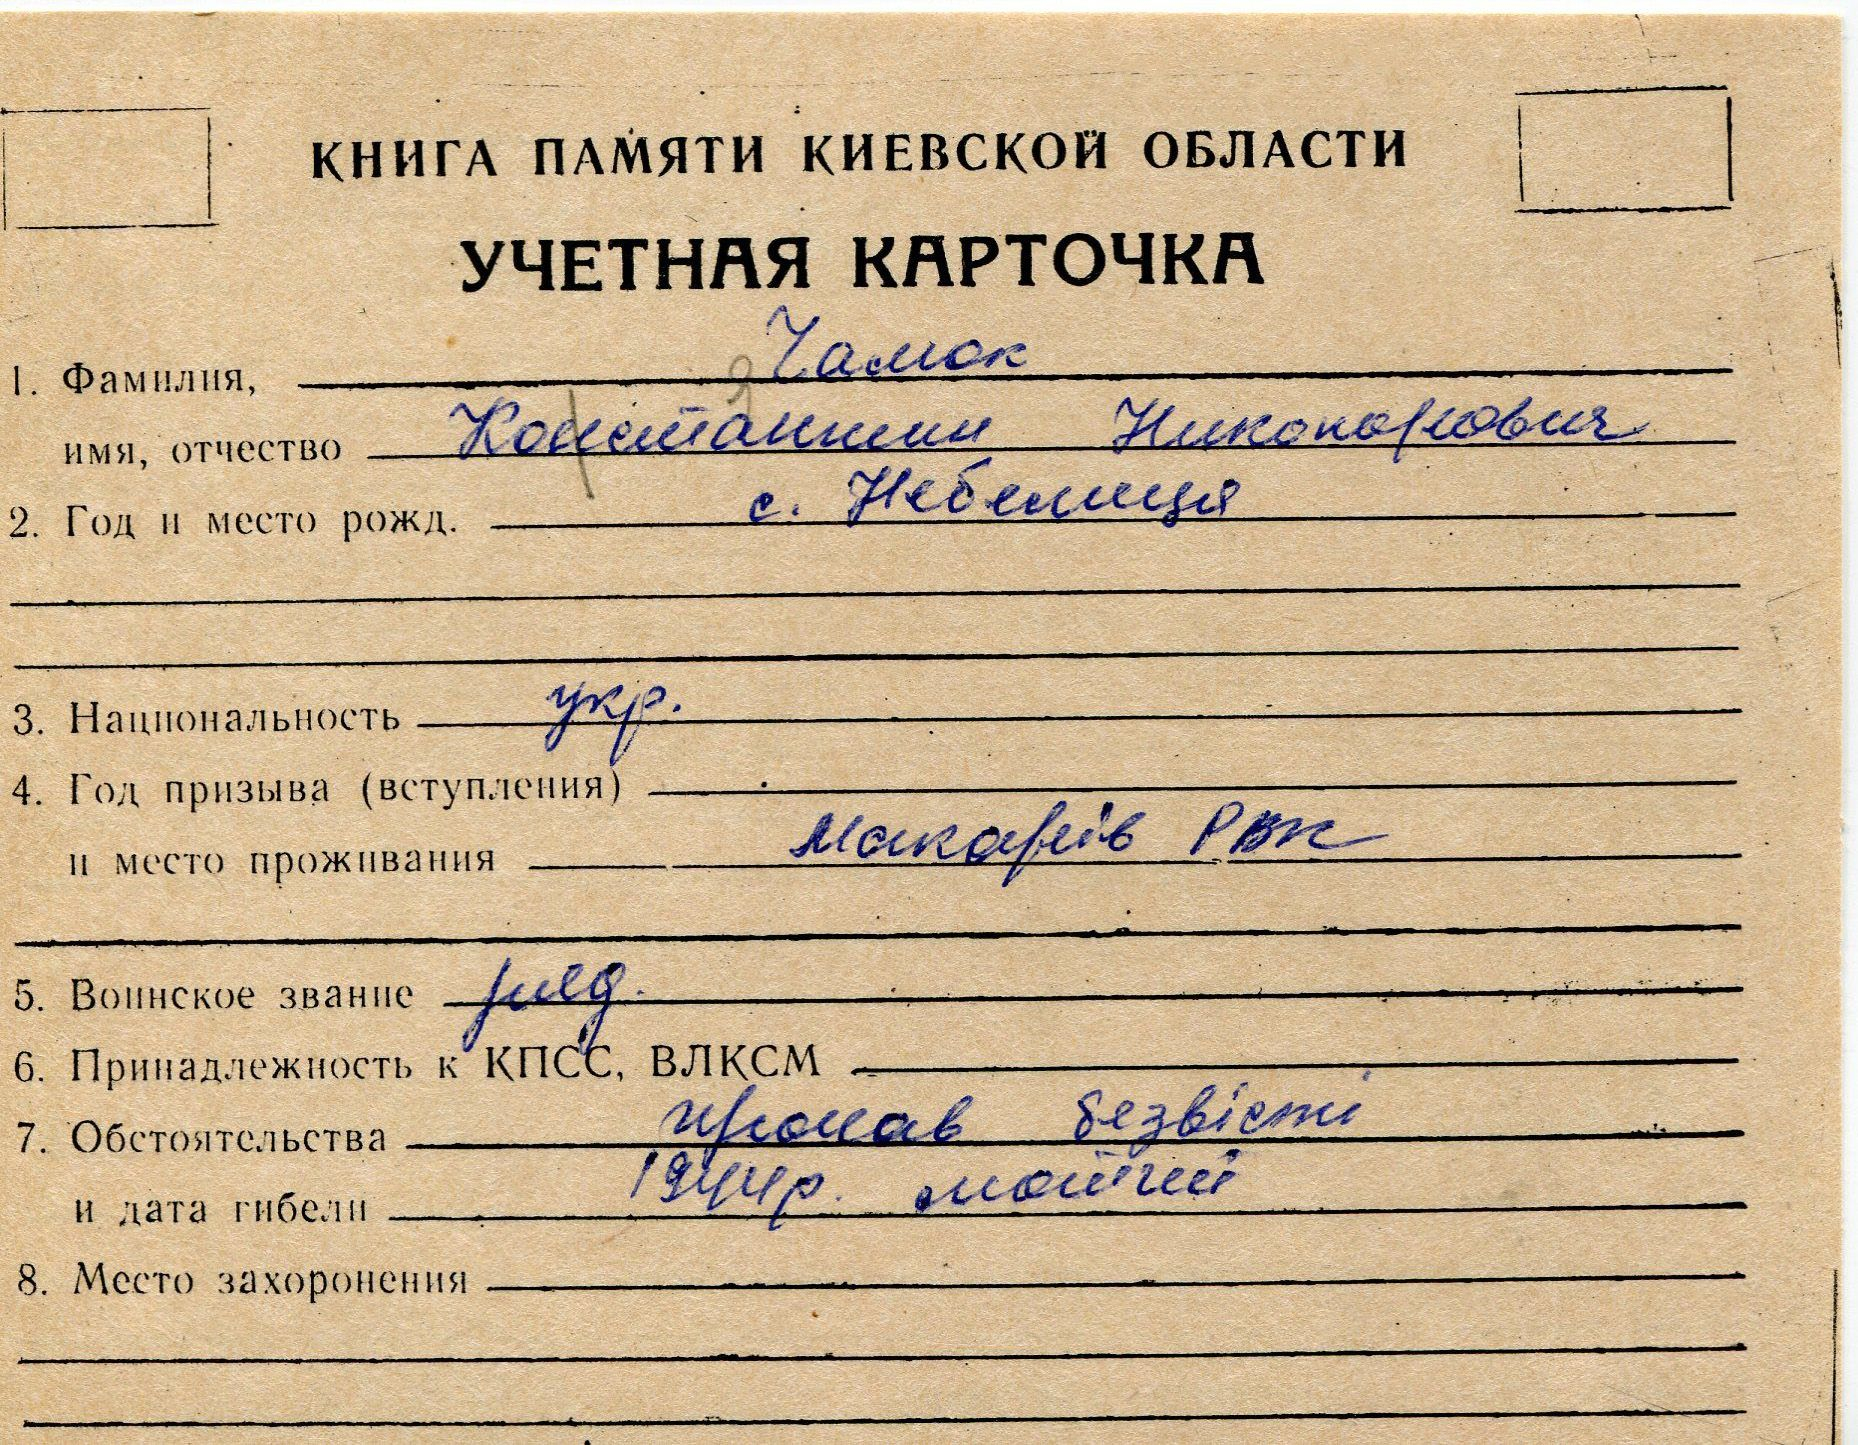 КНИГА ПАМЯТИ КИЕВСКОЙ ОБЛАСТИ
УЧЕТНАЯ КАРТОЧКА
1. Фамилия, Чамок
имя, отчество Константин Никонорович
2. Год и место рожд. с. Небелиця
3. Национальность укр.
4. Год призыва (вступления)
и место проживания Макарів РВК
5. Воинское звание ряд.
6. Принадлежность к КПСС, ВЛКСМ
7. Обстоятельства пропав безвісті
и дата гибели 1944р.
8. Место захоронения